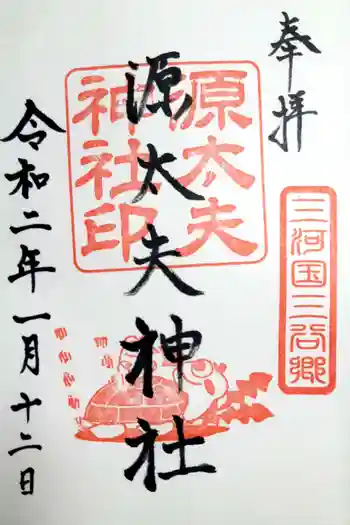 奉拝
三河国三谷郷
源太夫神社
原太夫
神社印
令和二年一月十二日